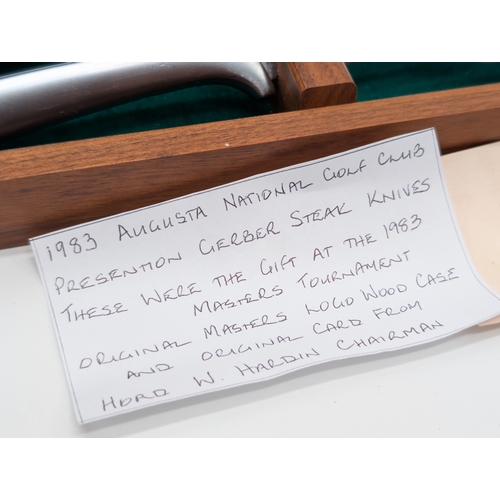 1983 AUGUSTA NATIONAL GOLF CLUB
PRESENTION GERBER STEAK KNIVES
THESE WERE THE GIFT AT THE 1983
MASTERS TOURNAMENT
ORIGINAL MASTERS LOGO WOOD CASE
AND ORIGINAL CARD FROM
HORD W. HARDIN CHAIRMAN